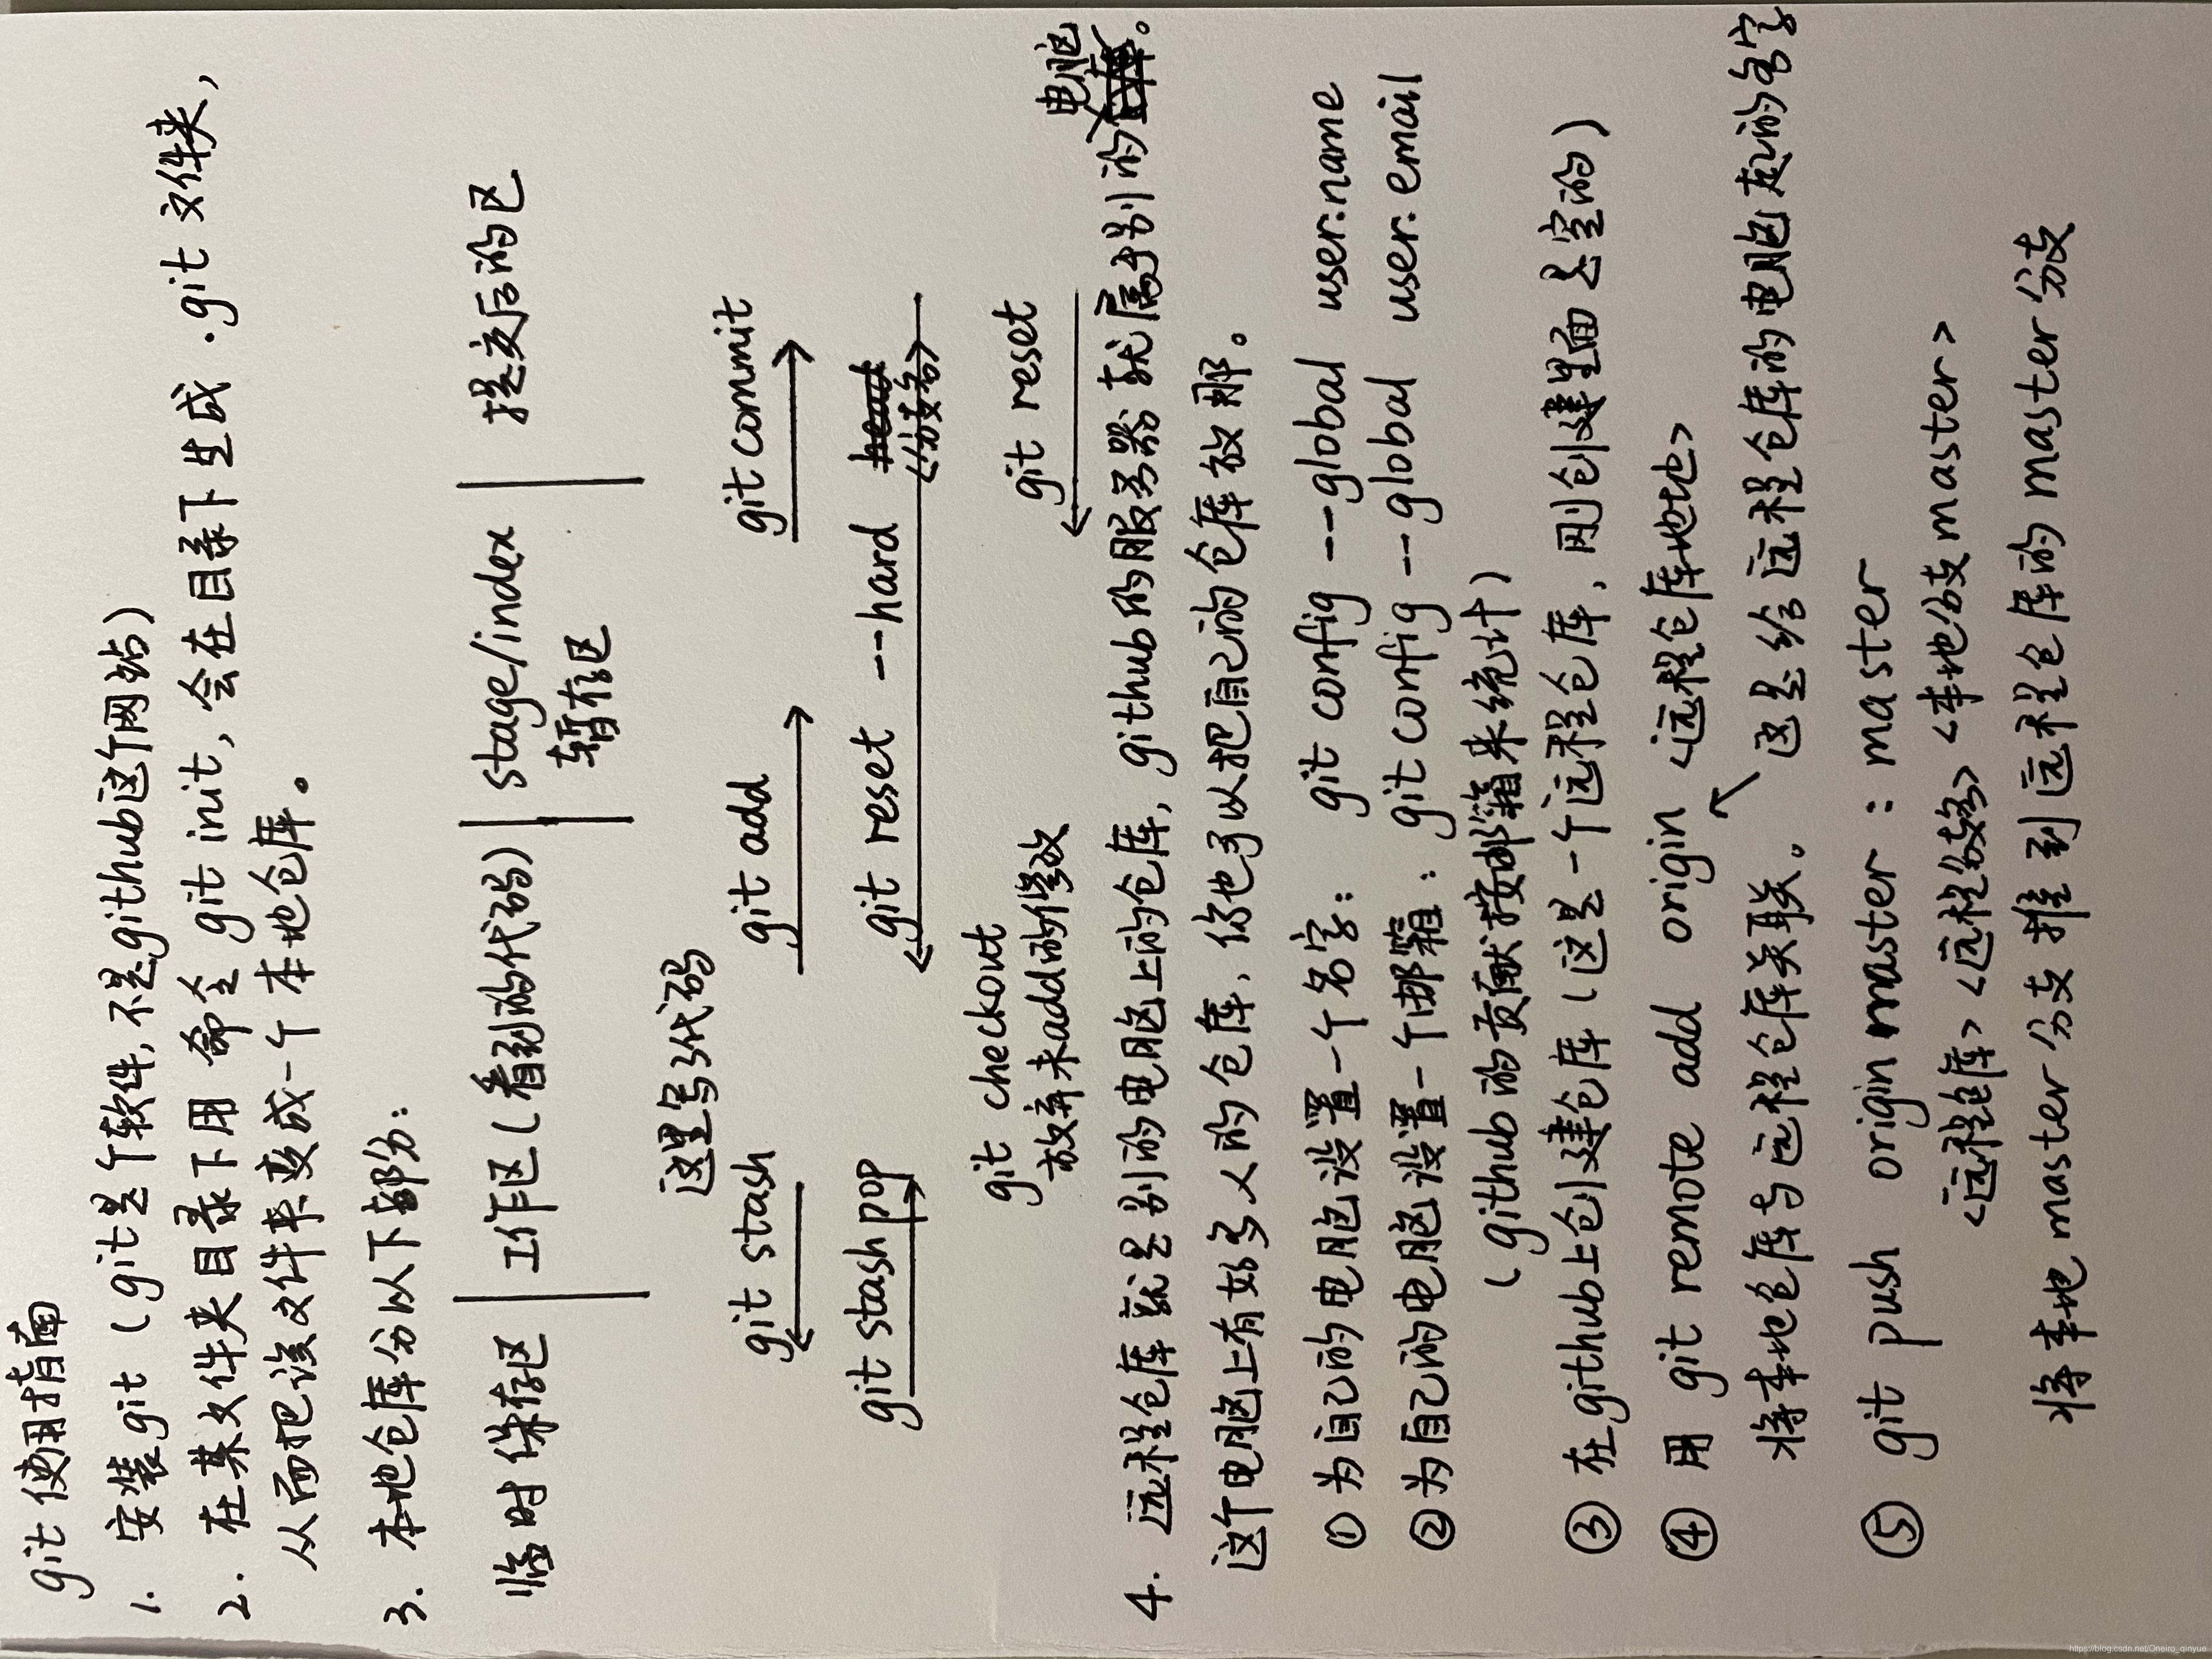 git使用指南
1. 安装git（git是个软件,不是github这个网站）
2. 在某文件夹目录下用 命令 git init, 会在目录下生成 .git 文件夹,
从而把该文件夹变成一个本地仓库。
3. 本地仓库分以下部分:
临时保存区 | 工作区（看到的代码） | stage/index | 提交后的区
暂存区
这里写代码
git stash git add git commit
git stash pop git reset --hard <分支名>
git checkout git reset
放弃未add的修改
电脑
4. 远程仓库就是别的电脑上的仓库, github的服务器就属于别的。
这个电脑上有好多人的仓库, 你也可以把自己的仓库放那。
① 为自己的电脑设置一个名字: git config --global user.name
② 为自己的电脑设置一个邮箱: git config --global user.email
（github的贡献按邮箱来统计）
③ 在github上创建仓库（这是一个远程仓库, 刚创建里面是空的）
④ 用 git remote add origin <远程仓库地址>
将本地仓库与远程仓库关联。 这是给远程仓库的电脑起的名字
⑤ git push origin master : master
<远程仓库> <远程分支> <本地分支master>
将本地master分支推到远程仓库的master分支
https://blog.csdn.net/Oneiro_qinyue